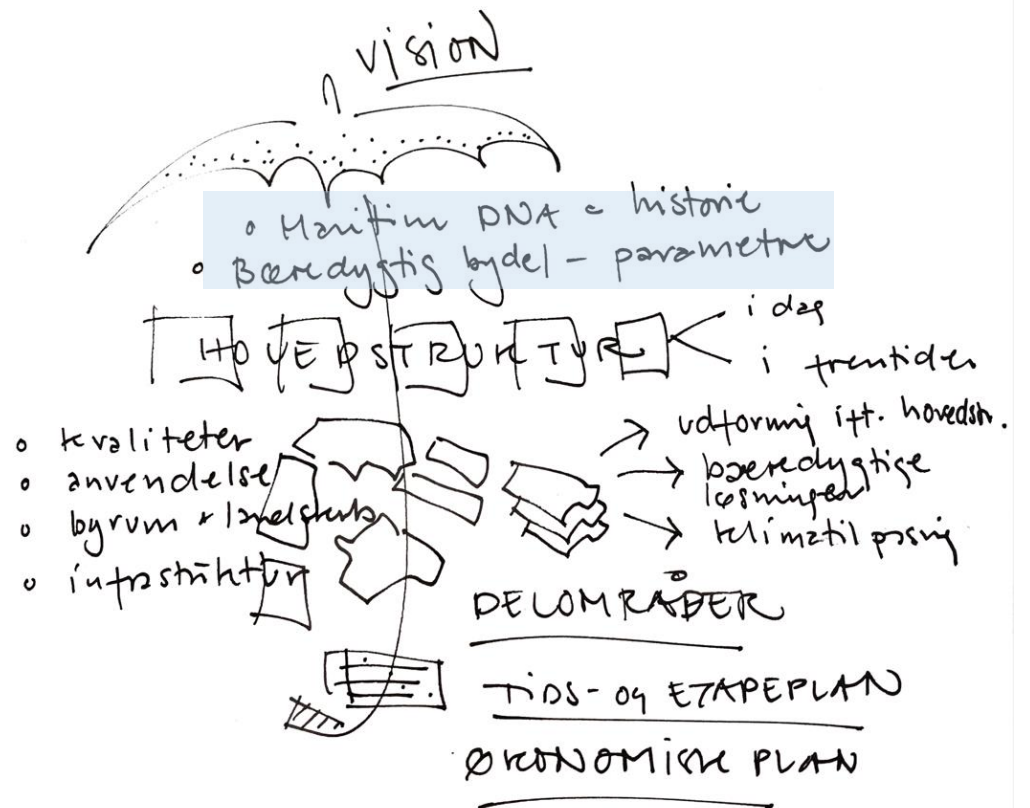 vision
• Maritim DNA = historie
• Bæredygtig bydel - parametre
HOVEDSTRUKTUR
i dag
i fremtiden
• kvaliteter
• anvendelse
• byrum + landskab
• infrastruktur
udformning ift. hovedstr.
bæredygtige
løsninger
klimatilpasning
DELOMRÅDER
TIDS- og ETAPEPLAN
ØKONOMISK PLAN